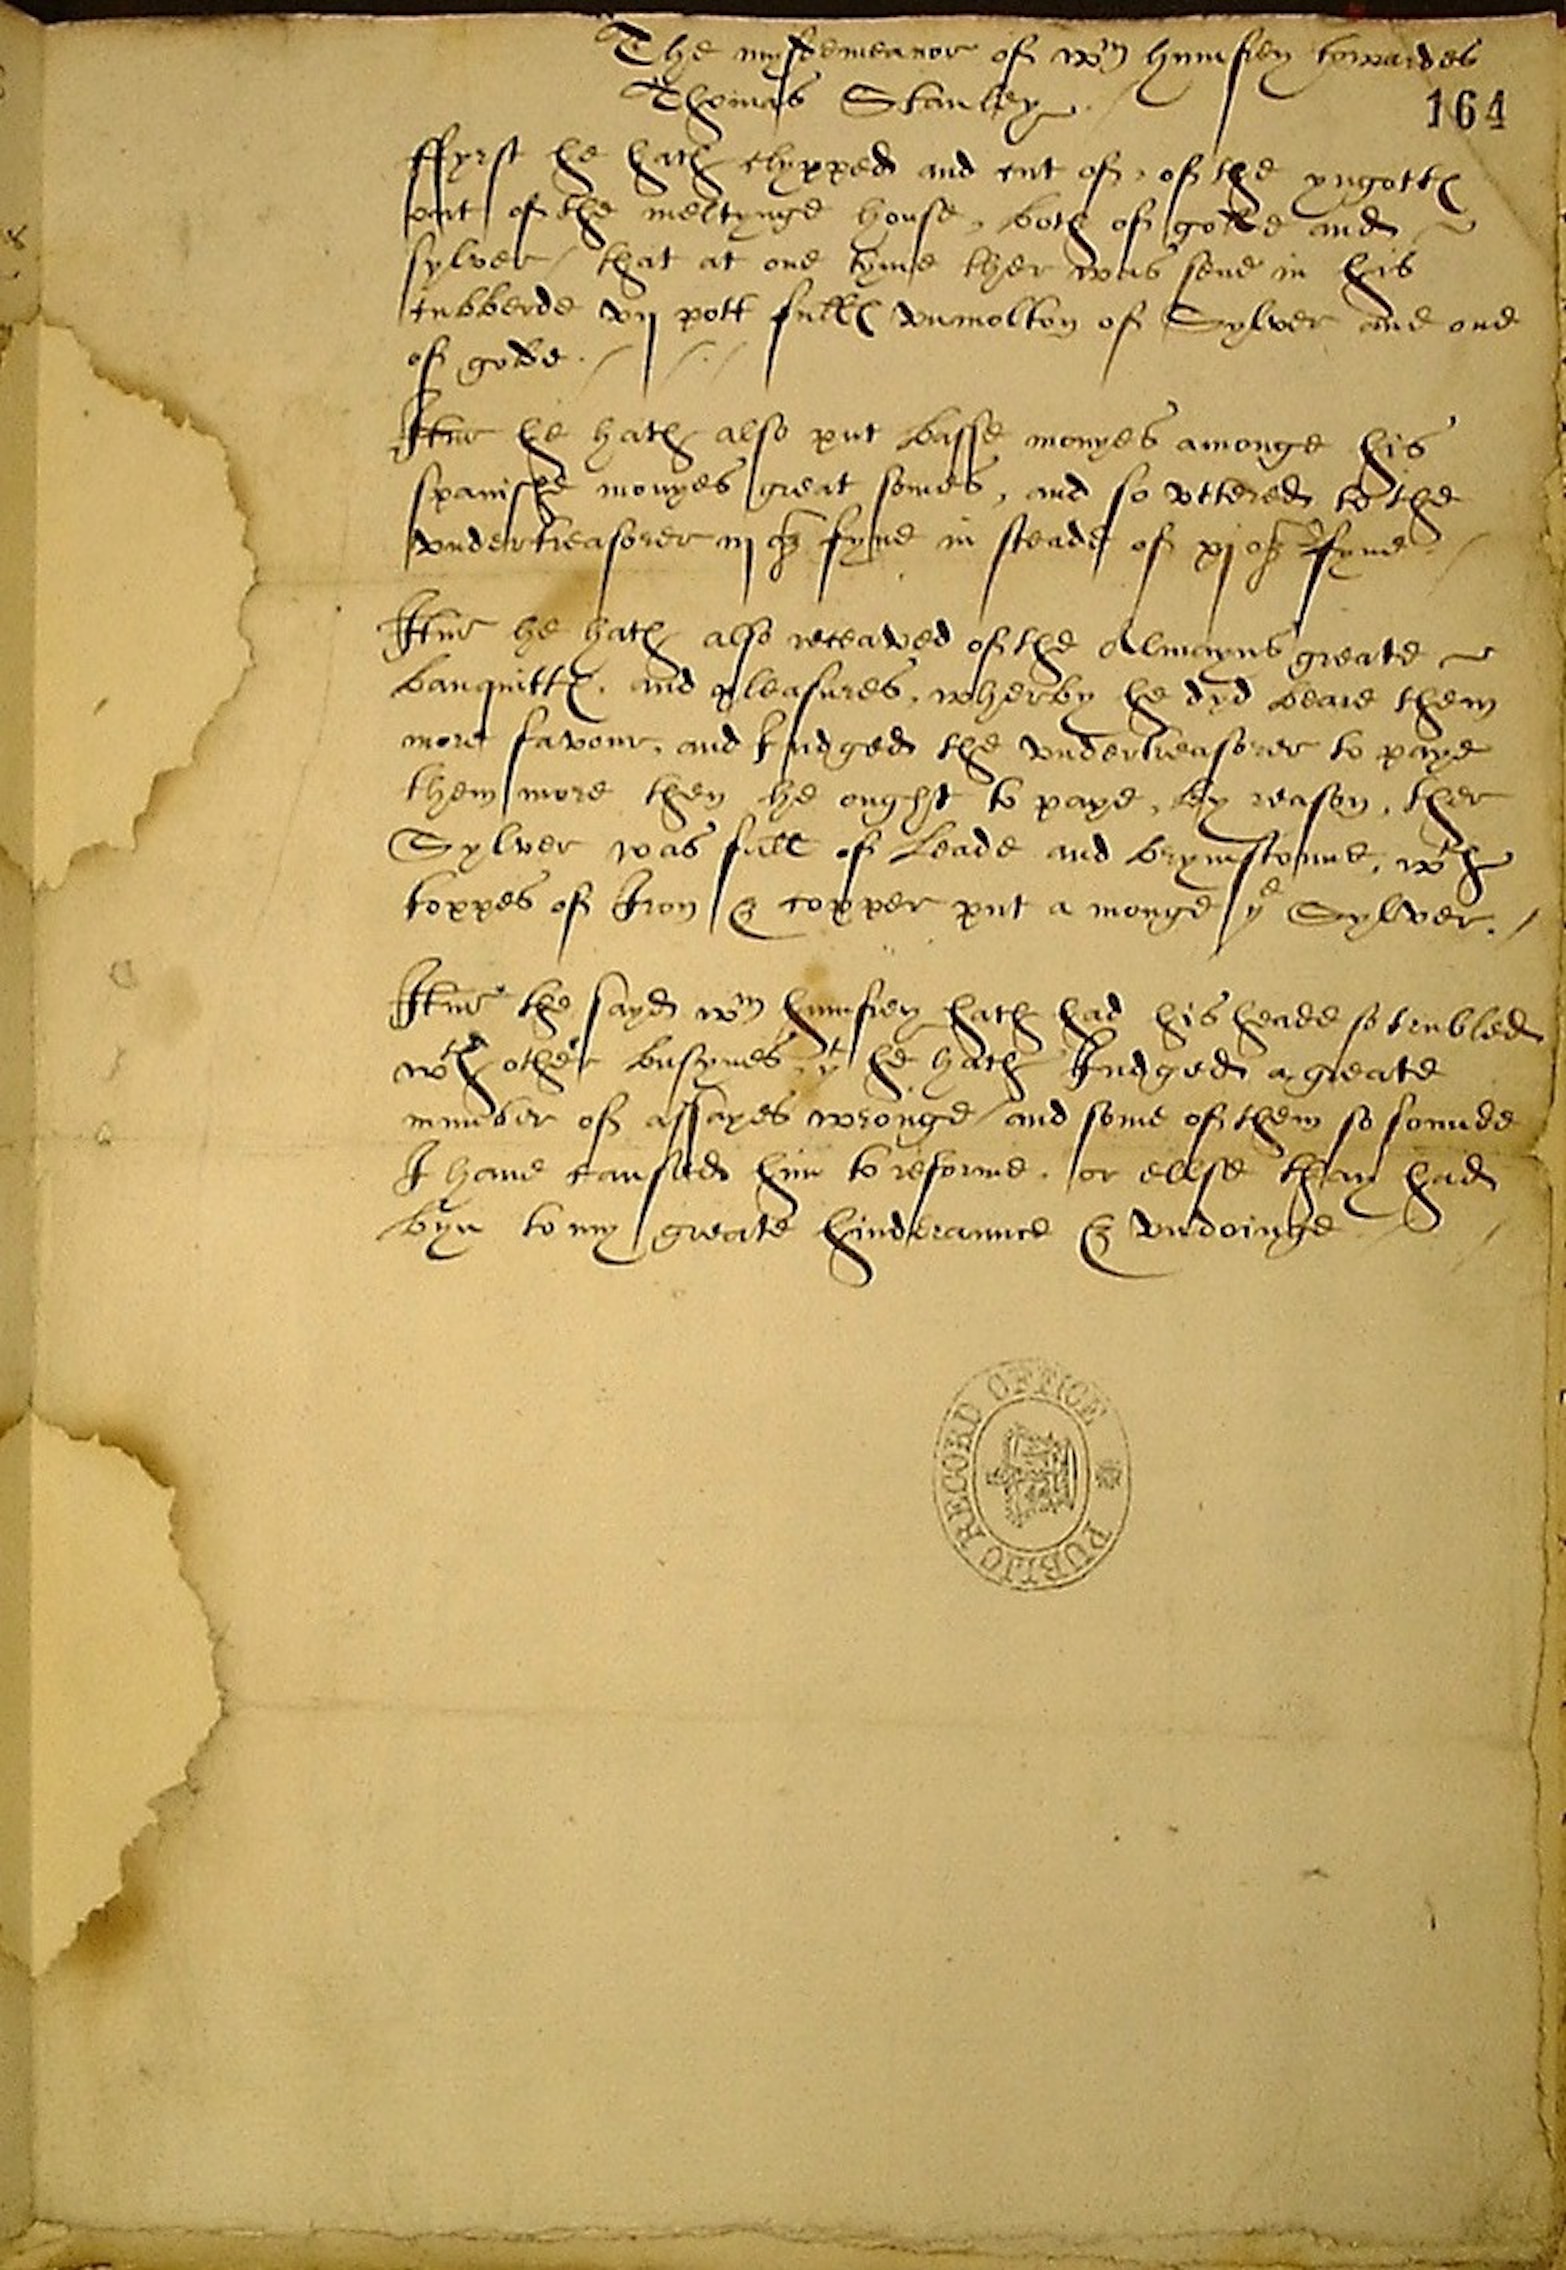 The mysdemeanor of Wm Humfrey towardes
Thomas Stanley
164
ffyrst he hath clypped and cut of, of the yngottes
out of the meltynge house, both of golde and
sylver / that at one tyme ther was sene in his
cubberde vij pottes full unmolton of Sylver and one
of golde.
Itm he hath also put basse monyes amonge his
spanishe monyes great somes, and so uttered to the
undertreasorer iij oz fyne in steade of xj oz fyne
Itm he hath also receaved of the Almayns greate
banquittes, and pleasures, wherby he dyd beare them
more favour, and Judged the undertreasorer to paye
them more then he ought to paye, by reason, ther
Sylver was full of Leade and brymstonne, wth
toppes of Iron & copper put a monge ye Sylver.
Itm the sayd Wm Humfrey hath had his heade so trubled
wth other busynes, yt he hath Judged a greate
number of assayes wronge / and some of them so sounde
I have caused him to reforme, or ellse thay had
byn to my greate hinderannce & undoinge
PUBLIC RECORD OFFICE